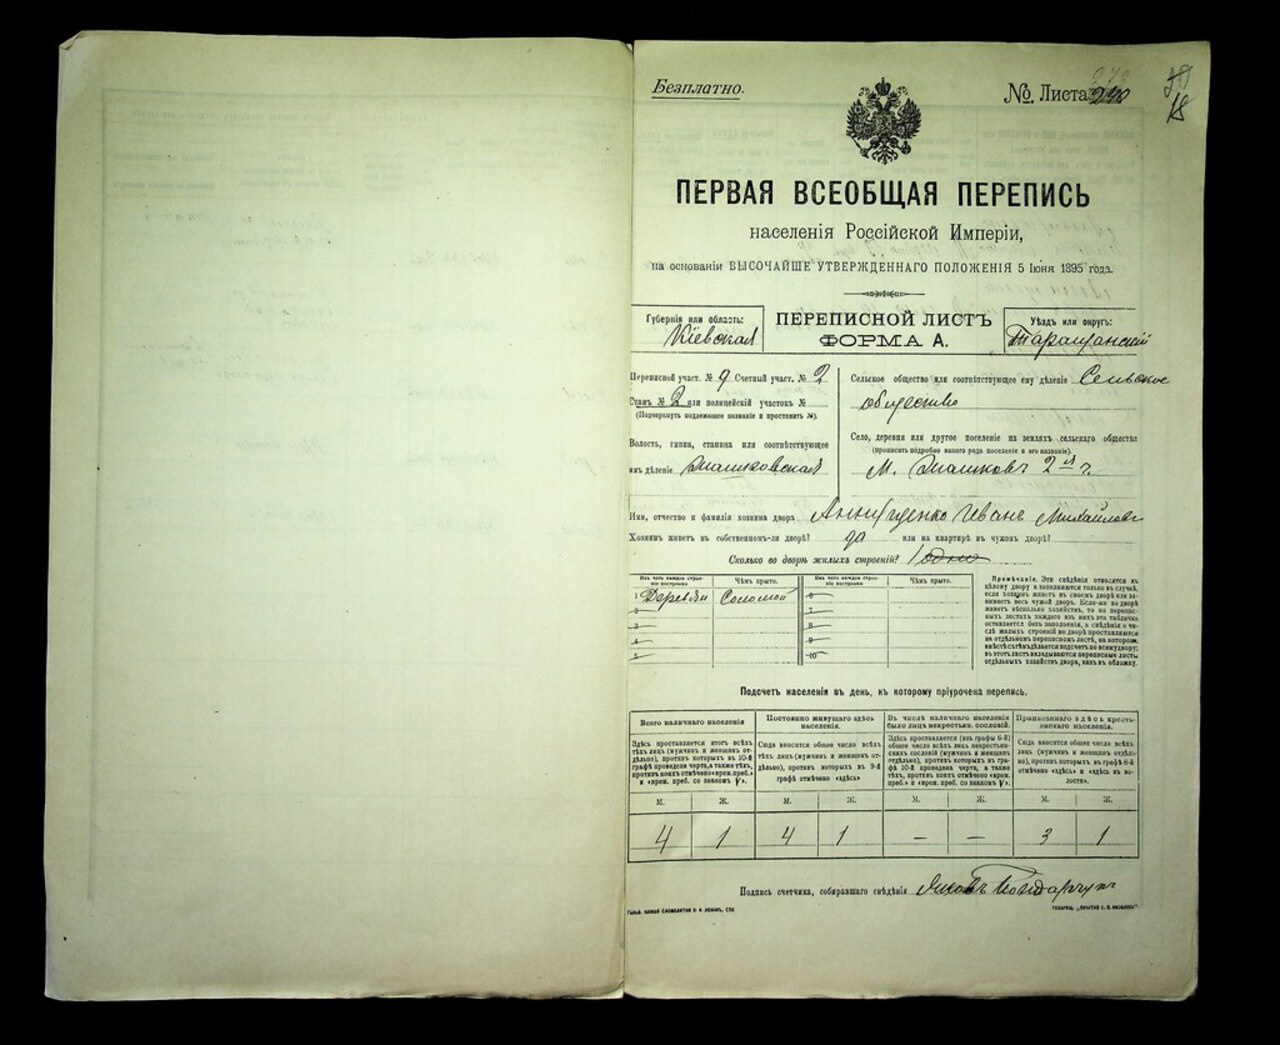 Безплатно.
№ Листа 240
18
ПЕРВАЯ ВСЕОБЩАЯ ПЕРЕПИСЬ
населенія Россійской Имперіи,
на основаніи ВЫСОЧАЙШЕ УТВЕРЖДЕННАГО ПОЛОЖЕНІЯ 5 Іюня 1895 года.
Губернія или область:
Кіевская
ПЕРЕПИСНОЙ ЛИСТЪ
ФОРМА А.
Уѣздъ или округъ:
Таращанскій
Переписной участ. № 9 Счетный участ. № 2
Станъ № 2 или полицейскій участокъ №
(Подчеркнуть подлежащее названіе и проставить №).
Волость, гмина, станица или соотвѣтствующее
имъ дѣленіе
Сельское общество или соотвѣтствующее ему дѣленіе Сельское
общество
Село, деревня или другое поселеніе на земляхъ сельскаго общества
(прописать подробно какого рода поселеніе и его названіе).
М. 2 я ч.
Имя, отчество и фамилія хозяина двора Иванъ Михайловъ
Хозяинъ живетъ въ собственномъ-ли дворѣ? да или на квартирѣ въ чужомъ дворѣ?
Сколько во дворѣ жилыхъ строеній? 1 одно
Изъ чего каждое строеніе построено
Чѣмъ крыто.
Изъ чего каждое строеніе построено
Чѣмъ крыто.
1 Деревян Соломой 6
2 7
3 8
4 9
5 10
Примѣчаніе. Эти свѣдѣнія относятся къ
цѣлому двору и заполняются только въ случаѣ,
если хозяинъ живетъ въ своемъ дворѣ или занимаетъ
весь чужой дворъ. Если-же во дворѣ
живетъ нѣсколько хозяйствъ, то на переписныхъ
листахъ каждаго изъ нихъ эта табличка
оставляется безъ заполненія, а свѣдѣнія о числѣ
жилыхъ строеній во дворѣ проставляются
на отдѣльномъ переписномъ листѣ, на которомъ
вмѣстѣ съ тѣмъ дѣлается подсчетъ по всему двору;
въ этотъ листъ вкладываются переписные листы
отдѣльныхъ хозяйствъ двора, какъ въ обложку.
Подсчетъ населенія въ день, къ которому пріурочена перепись.
Всего наличнаго населенія
Постоянно живущаго здѣсь населенія.
Въ числѣ наличнаго населенія было лицъ некрестьян. сословій.
Приписаннаго здѣсь крестьянскаго населенія.
Здѣсь проставляется итогъ всѣхъ тѣхъ лицъ (мужчинъ и женщинъ отдѣльно), противъ которыхъ въ 10-й графѣ проведена черта, а также тѣхъ, противъ коихъ отмѣчено «врем. преб.» и «врем. преб. со знакомъ V».
Сюда вносится общее число всѣхъ тѣхъ лицъ (мужчинъ и женщинъ отдѣльно), противъ которыхъ въ 9-й графѣ отмѣчено «здѣсь»
Здѣсь проставляется (изъ графы 6-й) общее число всѣхъ лицъ некрестьянскихъ сословій (мужчинъ и женщинъ отдѣльно), противъ которыхъ въ графѣ 10-й проведена черта, а также тѣхъ, противъ коихъ отмѣчено «врем. преб.» и «врем. преб. со знакомъ V».
Сюда вносится общее число всѣхъ лицъ (мужчинъ и женщинъ отдѣльно), противъ которыхъ въ графѣ 8-й отмѣчено «здѣсь» и «здѣсь въ волости».
М. Ж. М. Ж. М. Ж. М. Ж.
4 1 4 1 — — 3 1
Подпись счетчика, собиравшаго свѣдѣнія Яковъ Бондарчукъ